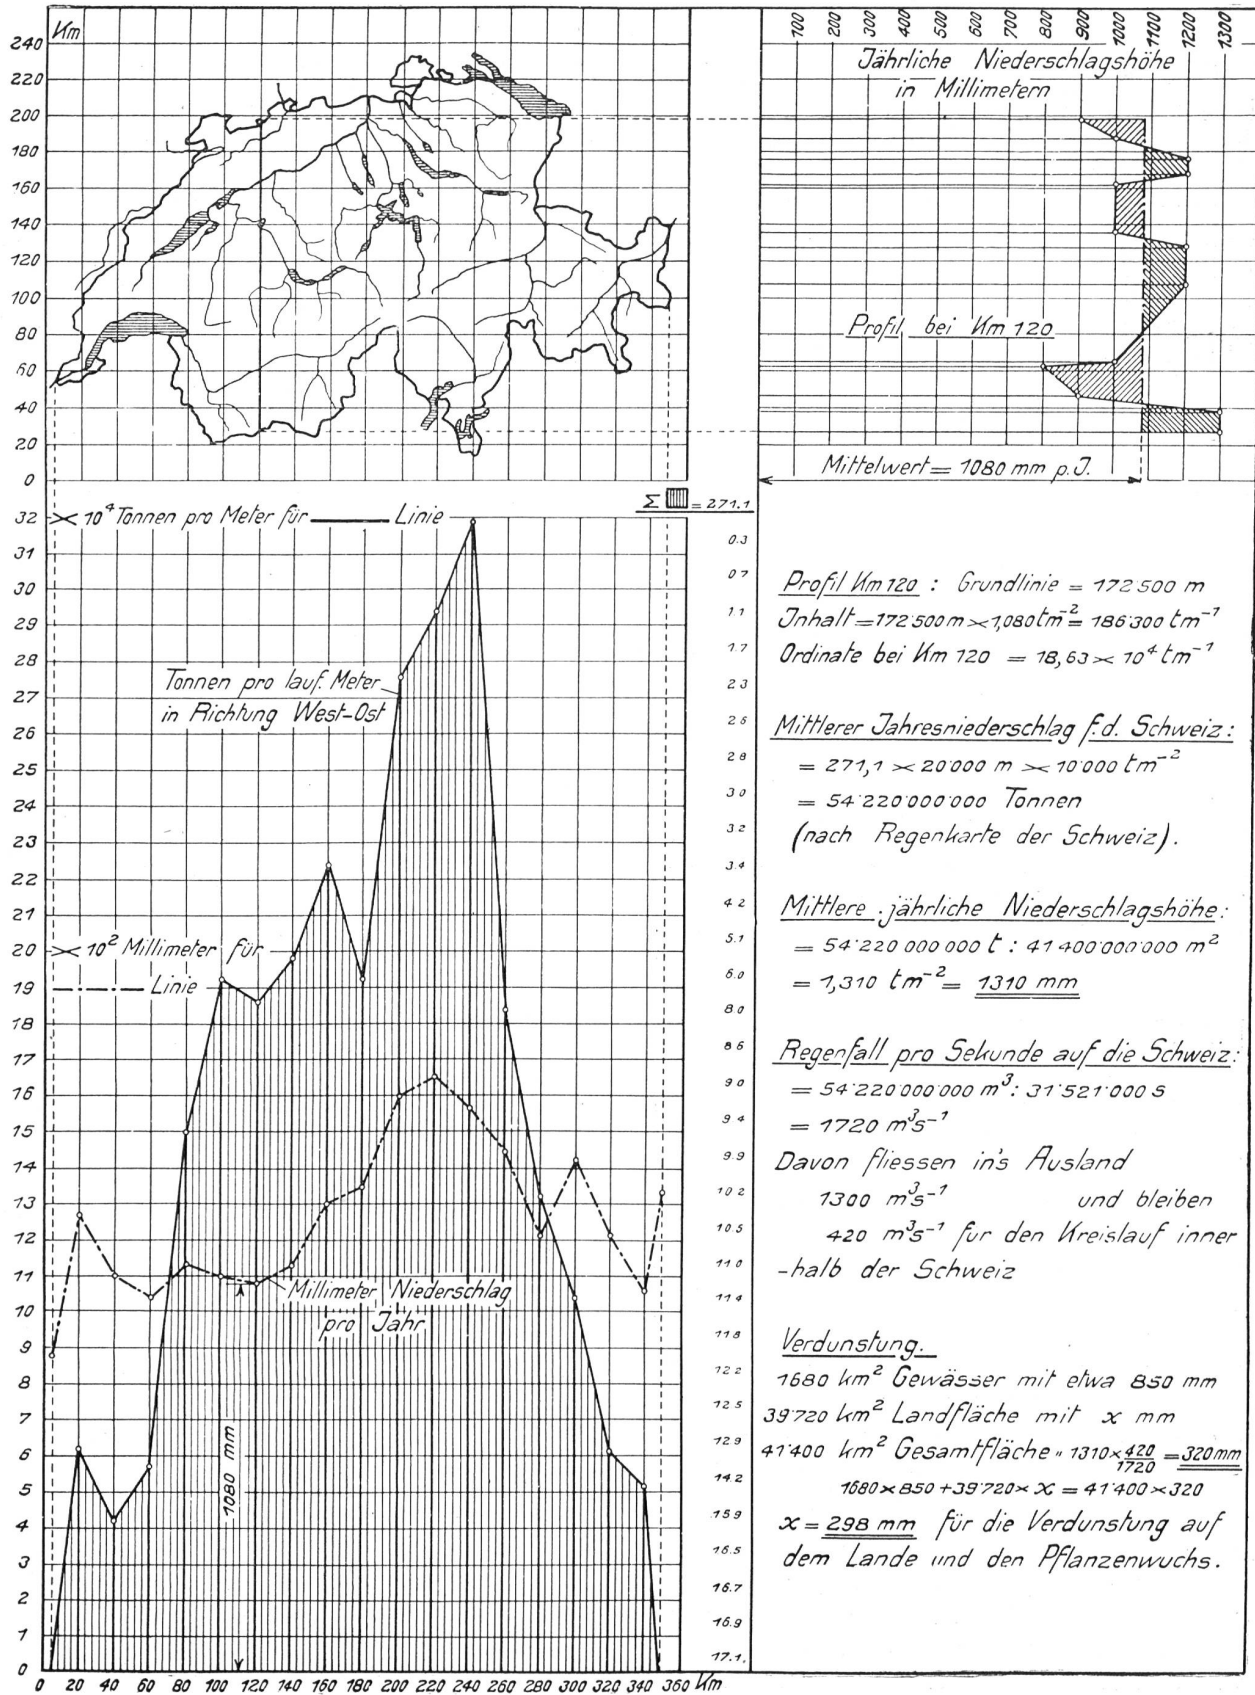 Km
240
220
200
180
160
140
120
100
80
60
40
20
0
100 200 300 400 500 600 700 800 900 1000 1100 1200 1300
Jährliche Niederschlagshöhe
in Millimetern
Profil bei Km 120
Mittelwert = 1080 mm p.J.
Σ = 271.1
× 10⁴ Tonnen pro Meter für Linie
32
31
30
29
28
27
26
25
24
23
22
21
20
19
18
17
16
15
14
13
12
11
10
9
8
7
6
5
4
3
2
1
0
Tonnen pro lauf. Meter
in Richtung West-Ost
× 10² Millimeter für
Linie
Millimeter Niederschlag
pro Jahr
1080 mm
0 20 40 60 80 100 120 140 160 180 200 220 240 260 280 300 320 340 360 Km
0.3
0.7
1.1
1.7
2.3
2.5
2.8
3.0
3.2
3.4
4.2
5.1
6.0
8.0
8.6
9.0
9.4
9.9
10.2
10.5
11.0
11.4
11.8
12.2
12.5
12.9
14.2
15.9
16.5
16.7
16.9
17.1.
Profil Km 120 : Grundlinie = 172'500 m
Inhalt = 172'500 m × 1,080 tm⁻² = 186'300 tm⁻¹
Ordinate bei Km 120 = 18,63 × 10⁴ tm⁻¹
Mittlerer Jahresniederschlag f.d. Schweiz:
= 271,1 × 20'000 m × 10'000 tm⁻²
= 54'220'000'000 Tonnen
(nach Regenkarte der Schweiz).
Mittlere jährliche Niederschlagshöhe:
= 54'220'000'000 t : 41'400'000'000 m²
= 1,310 tm⁻² = 1310 mm
Regenfall pro Sekunde auf die Schweiz:
= 54'220'000'000 m³ : 31'521'000 s
= 1720 m³s⁻¹
Davon fliessen in's Ausland
1300 m³s⁻¹ und bleiben
420 m³s⁻¹ für den Kreislauf inner
-halb der Schweiz
Verdunstung.
1680 km² Gewässer mit etwa 850 mm
39'720 km² Landfläche mit x mm
41'400 km² Gesamtfläche " 1310 × 420/1720 = 320 mm
1680 × 850 + 39'720 × x = 41'400 × 320
x = 298 mm für die Verdunstung auf
dem Lande und den Pflanzenwuchs.